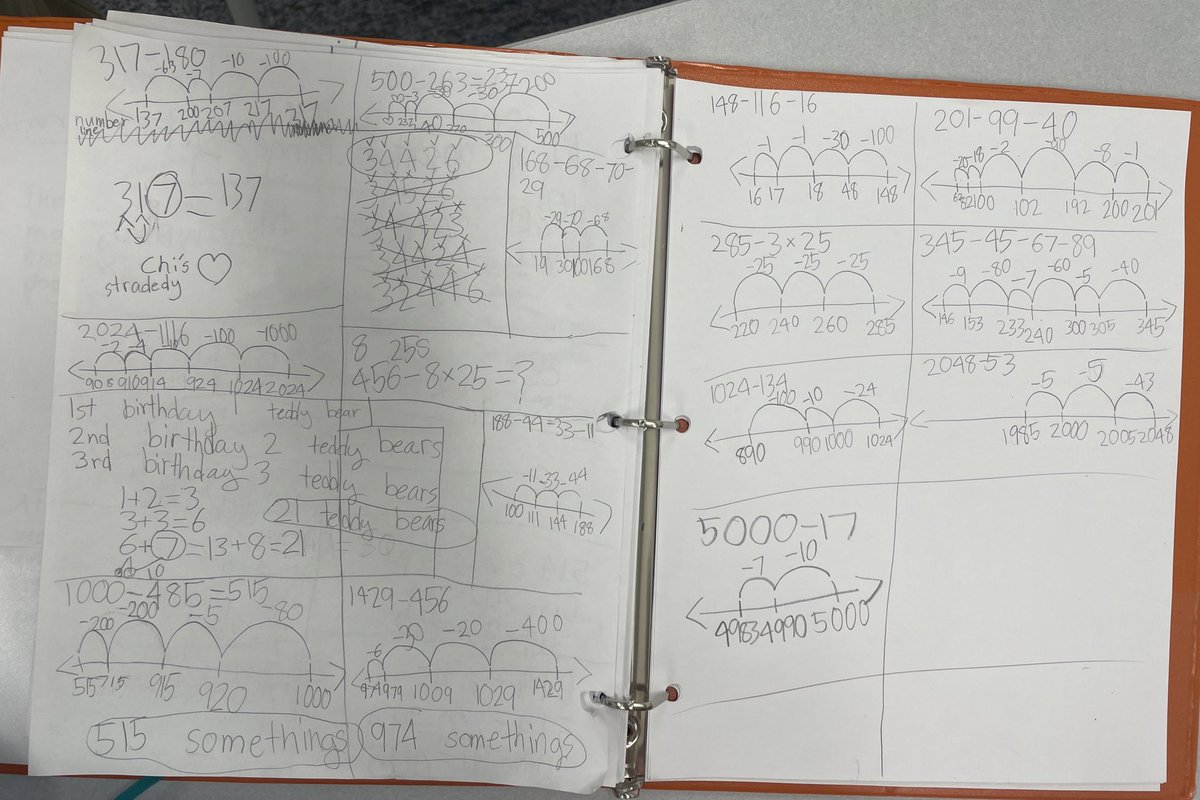 317-180
-63 -7 -10 -100
137 200 207 217 317
number
line
317=137
Chi's
stradedy
500-263=237
-200
-30
237 300 500
34426
168-68-70-
29
-29 -70 -68
19 30 100 168
2024-1116
-2 -4 -10 -100 -1000
908 910 914 924 1024 2024
8 25s
456-8×25=?
1st birthday 1 teddy bear
2nd birthday 2 teddy bears
3rd birthday 3 teddy bears
1+2=3
3+3=6
21 teddy bears
6+7=13+8=21
188-44=33-11
-11 -33 -44
100 111 144 188
1000-485=515
-200 -200 -5 -80
515 715 915 920 1000
515 somethings
1429-456
-6 -20 -400
974 979 1009 1029 1429
974 somethings
148-116-16
-1 -1 -30 -100
16 17 18 48 148
201-99-40
-20 -18 -2 -90 -8 -1
62 82 100 102 192 200 201
285-3×25
-25 -25 -25
220 240 260 285
345-45-67-89
-9 -80 -7 -60 -5 -40
146 153 233 240 300 305 345
1024-134
-100 -10 -24
890 990 1000 1024
2048-53
-5 -5 -43
1985 2000 2005 2048
5000-17
-7 -10
4983 4990 5000